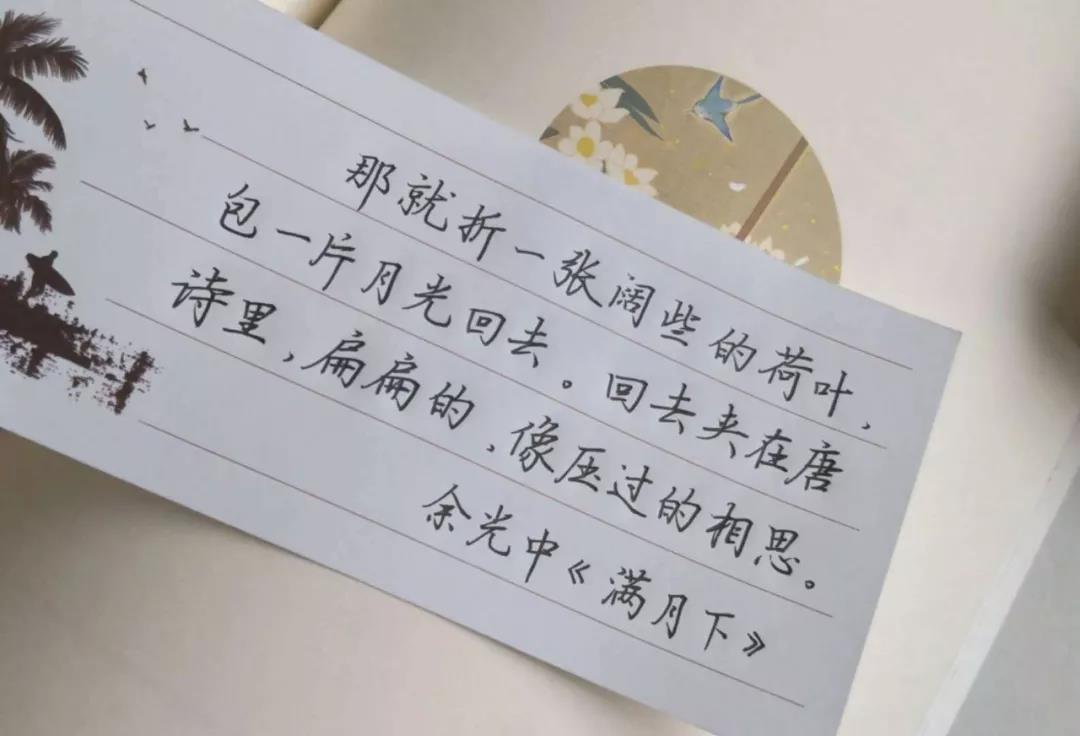 那就折一张阔些的荷叶,
包一片月光回去。回去夹在唐
诗里,扁扁的,像压过的相思。
余光中《满月下》